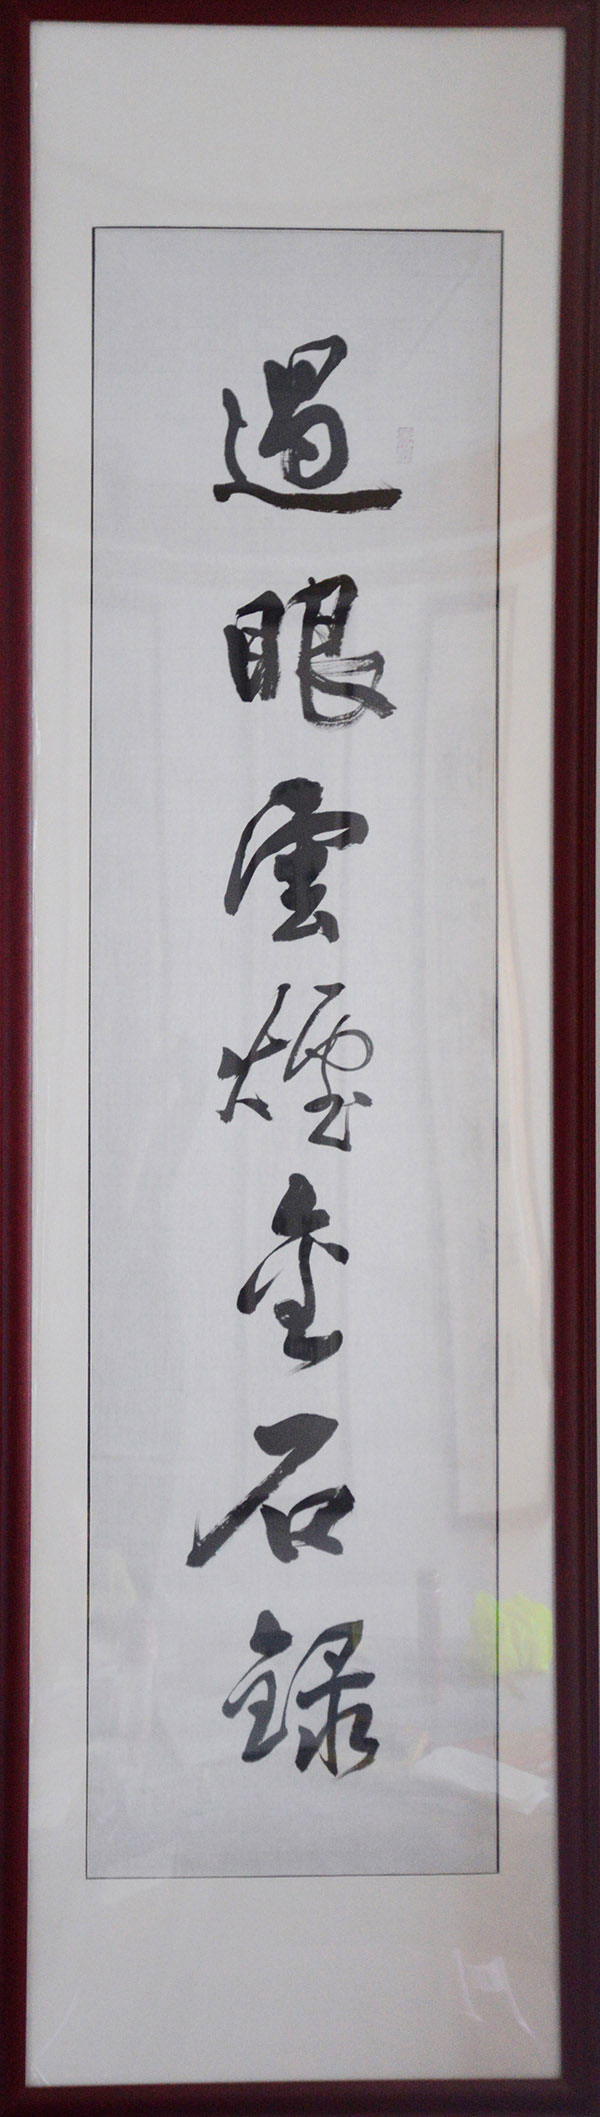 過眼雲煙金石録